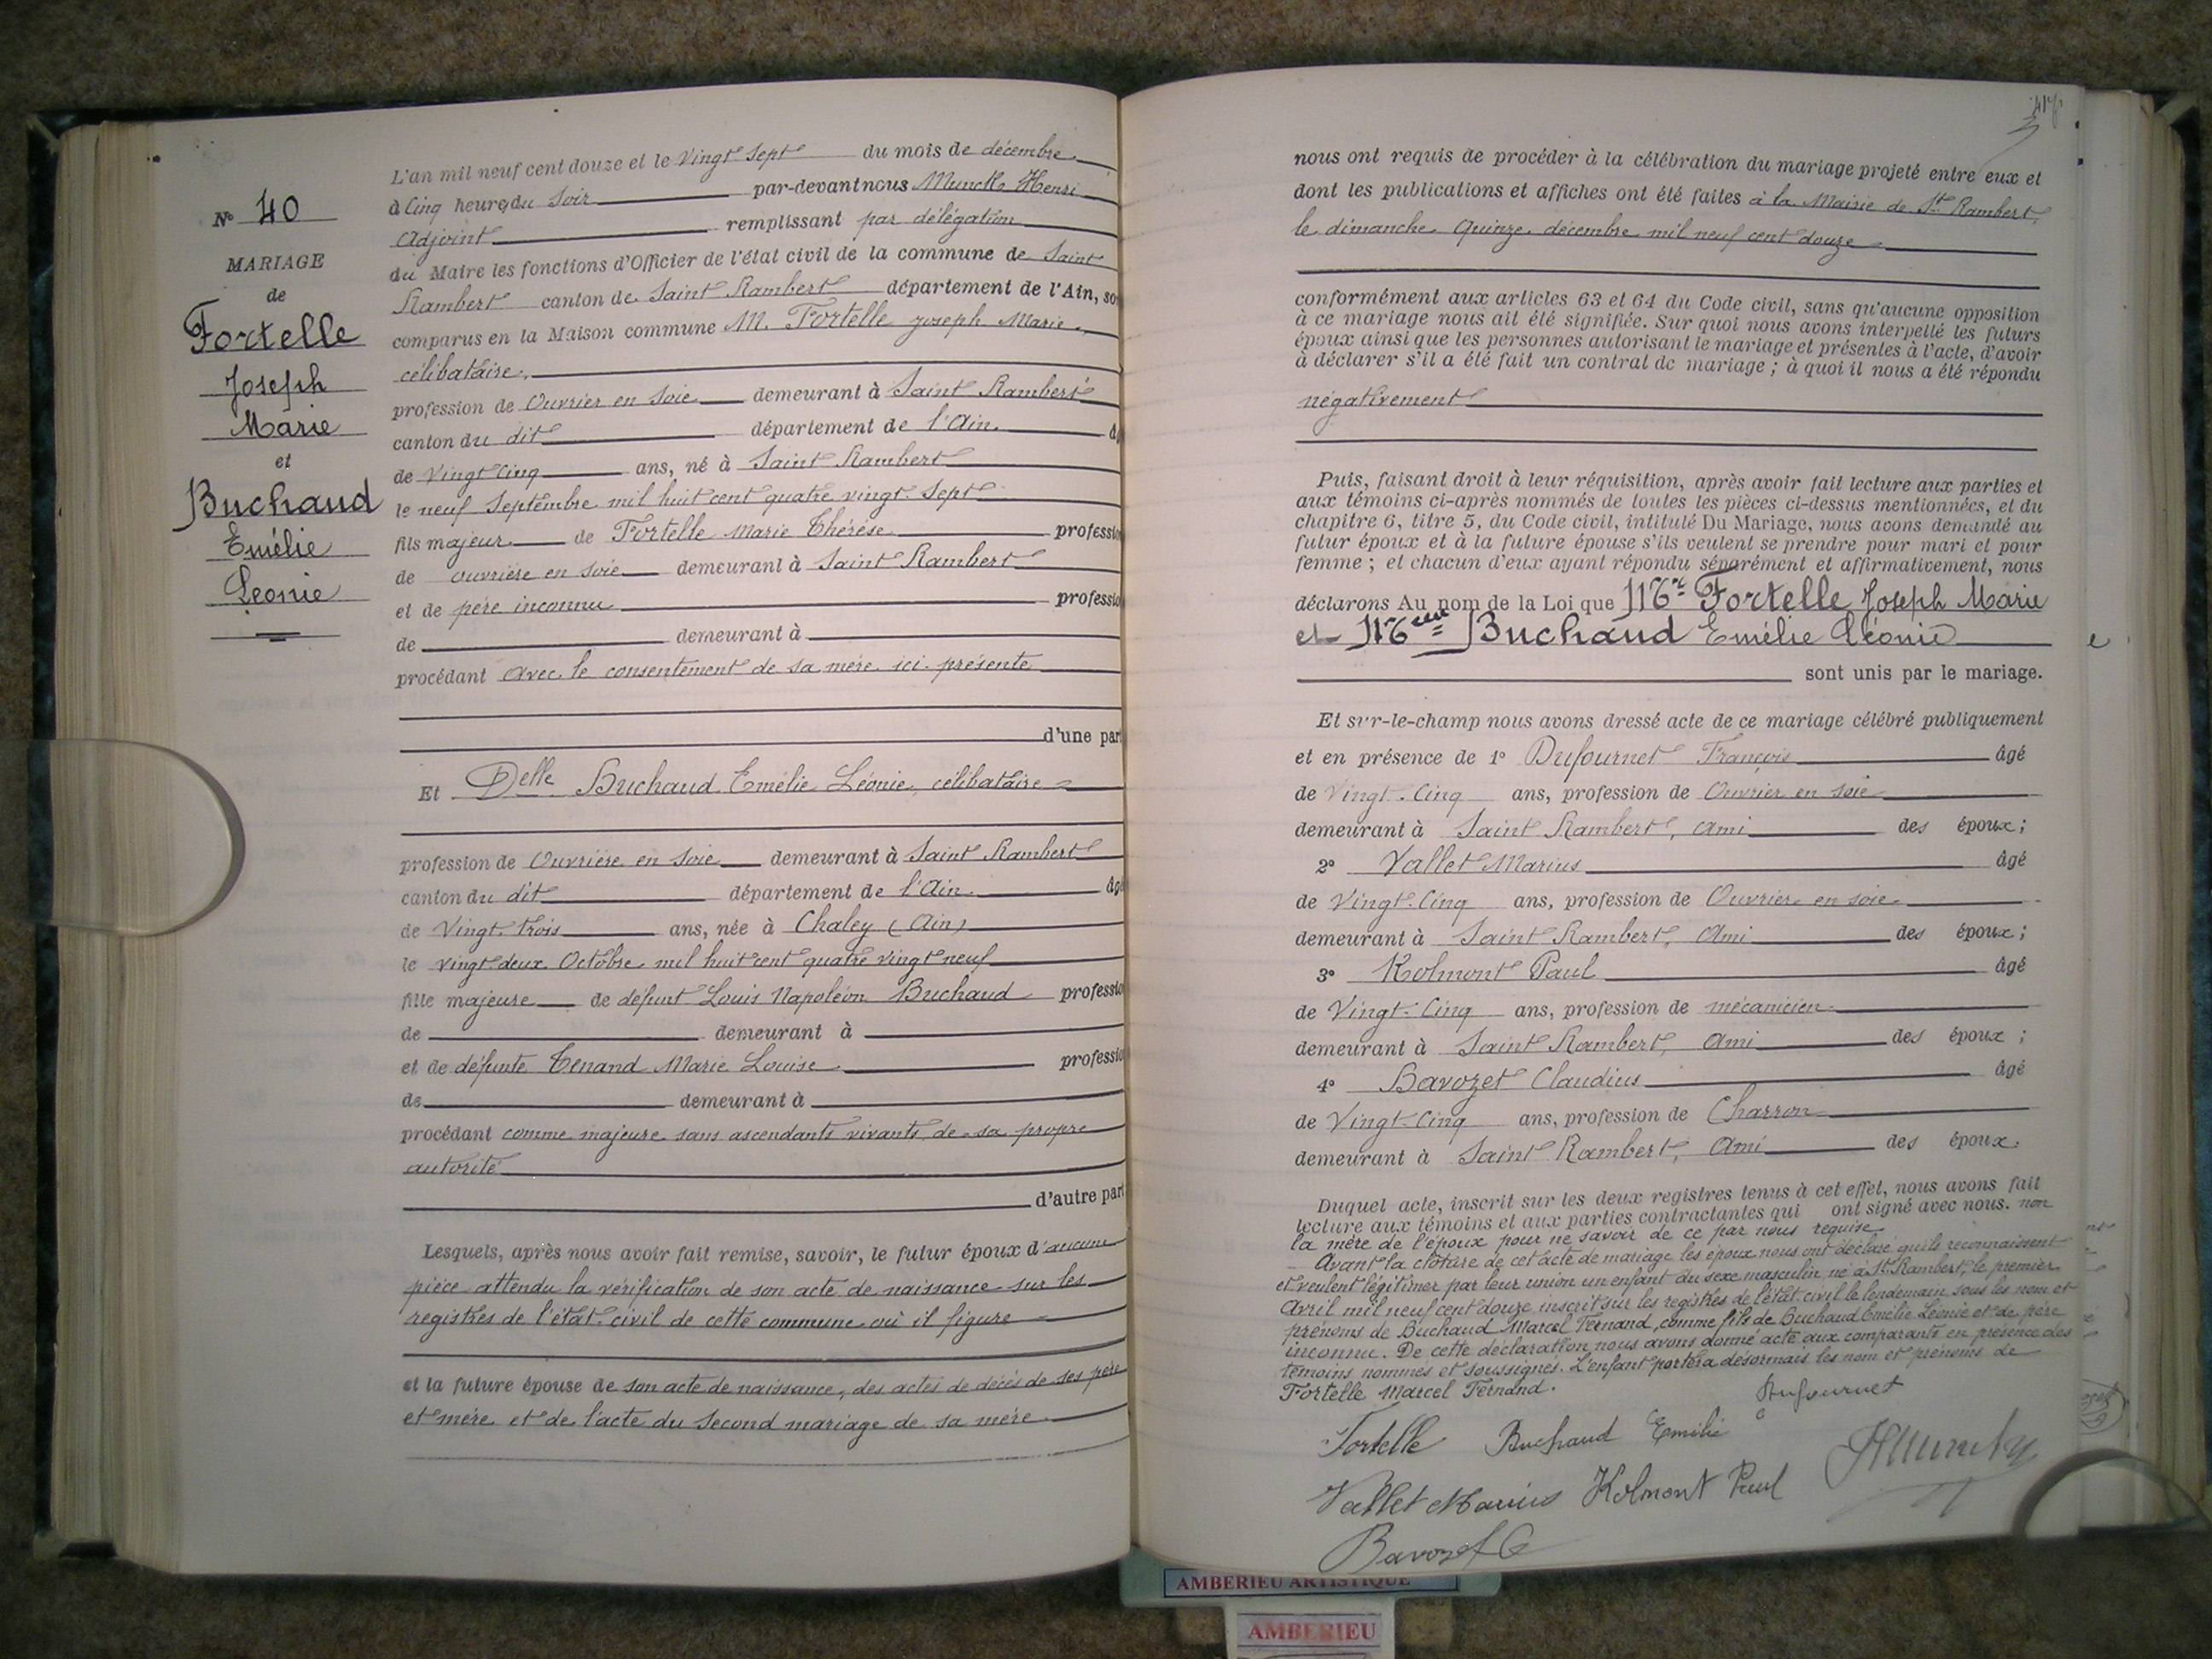 N° 40
MARIAGE
de
Fortelle
Joseph
Marie
et
Buchaud
Emélie
Leonie
L'an mil neuf cent douze et le Vingt Sept du mois de décembre
à Cinq heures du Soir par-devant nous Henri
Adjoint remplissant par délégation
du Maire les fonctions d'Officier de l'état civil de la commune de Saint
Rambert canton de Saint Rambert département de l'Ain, son
comparus en la Maison commune M. Fortelle Joseph Marie,
célibataire,
profession de Ouvrier en Soie demeurant à Saint Rambert
canton du dit département de l'Ain.
de Vingt Cinq ans, né à Saint Rambert
le neuf Septembre mil huit cent quatre vingt Sept
fils majeur de Fortelle Marie Thérèse professio
de ouvrière en soie demeurant à Saint Rambert
et de père inconnu professio
de demeurant à
procédant avec le consentement de sa mère ici présente
d'une par
Et Delle Buchaud Emélie Léonie, célibataire
profession de Ouvrière en Soie demeurant à Saint Rambert
canton du dit département de l'Ain. âgé
de Vingt trois ans, née à Chaley (Ain)
le vingt deux Octobre mil huit cent quatre vingt neuf
fille majeure de défunt Louis Napoléon Buchaud professio
de demeurant à
et de défunte Tenand Marie Louise professio
de demeurant à
procédant comme majeure sans ascendants vivants de sa propre
autorité
d'autre part
Lesquels, après nous avoir fait remise, savoir, le futur époux d'aucune
pièce attendu la vérification de son acte de naissance sur les
registres de l'état-civil de cette commune où il figure
et la future épouse de son acte de naissance, des actes de décès de ses père
et mère et de l'acte du second mariage de sa mère.
nous ont requis de procéder à la célébration du mariage projeté entre eux et
dont les publications et affiches ont été faites à la Mairie de St Rambert
le dimanche Quinze décembre mil neuf cent douze
conformément aux articles 63 et 64 du Code civil, sans qu'aucune opposition
à ce mariage nous ait été signifiée. Sur quoi nous avons interpellé les futurs
époux ainsi que les personnes autorisant le mariage et présentes à l'acte, d'avoir
à déclarer s'il a été fait un contrat de mariage ; à quoi il nous a été répondu
négativement
Puis, faisant droit à leur réquisition, après avoir fait lecture aux parties et
aux témoins ci-après nommés de toutes les pièces ci-dessus mentionnées, et du
chapitre 6, titre 5, du Code civil, intitulé Du Mariage, nous avons demandé au
futur époux et à la future épouse s'ils veulent se prendre pour mari et pour
femme ; et chacun d'eux ayant répondu séparément et affirmativement, nous
déclarons Au nom de la Loi que Mr Fortelle Joseph Marie
et Buchaud Emélie Léonie
sont unis par le mariage.
Et sur-le-champ nous avons dressé acte de ce mariage célébré publiquement
et en présence de 1° Dufournet François âgé
de Vingt-Cinq ans, profession de Ouvrier en soie
demeurant à Saint Rambert, ami des époux ;
2° Vallet Marius âgé
de Vingt-Cinq ans, profession de Ouvrier en soie
demeurant à Saint Rambert, Ami des époux ;
3° Kolmont Paul âgé
de Vingt-Cinq ans, profession de mécanicien
demeurant à Saint Rambert, Ami des époux ;
4° Bavozet Claudius âgé
de Vingt-Cinq ans, profession de Charron
demeurant à Saint Rambert, Ami des époux.
Duquel acte, inscrit sur les deux registres tenus à cet effet, nous avons fait
lecture aux témoins et aux parties contractantes qui ont signé avec nous. non
la mère de l'époux pour ne savoir de ce par nous requise
Avant la clôture de cet acte de mariage les époux nous ont déclaré qu'ils reconnaissent
et veulent légitimer par leur union un enfant du sexe masculin né à St Rambert, le premier
Avril mil neuf cent douze inscrit sur les registres de l'état civil le lendemain sous les nom et
prénoms de Buchaud Marcel Fernand, comme fils de Buchaud Emélie Léonie et de père
inconnu. De cette déclaration nous avons donné acte aux comparants en présence des
témoins nommés et soussignés. L'enfant portera désormais les nom et prénoms de
Fortelle Marcel Fernand.
Dufournet
Fortelle Buchaud Emélie
Vallet Marius Kolmont Paul
Bavozet C
AMBERIEU ARTISTIQUE
AMBERIEU